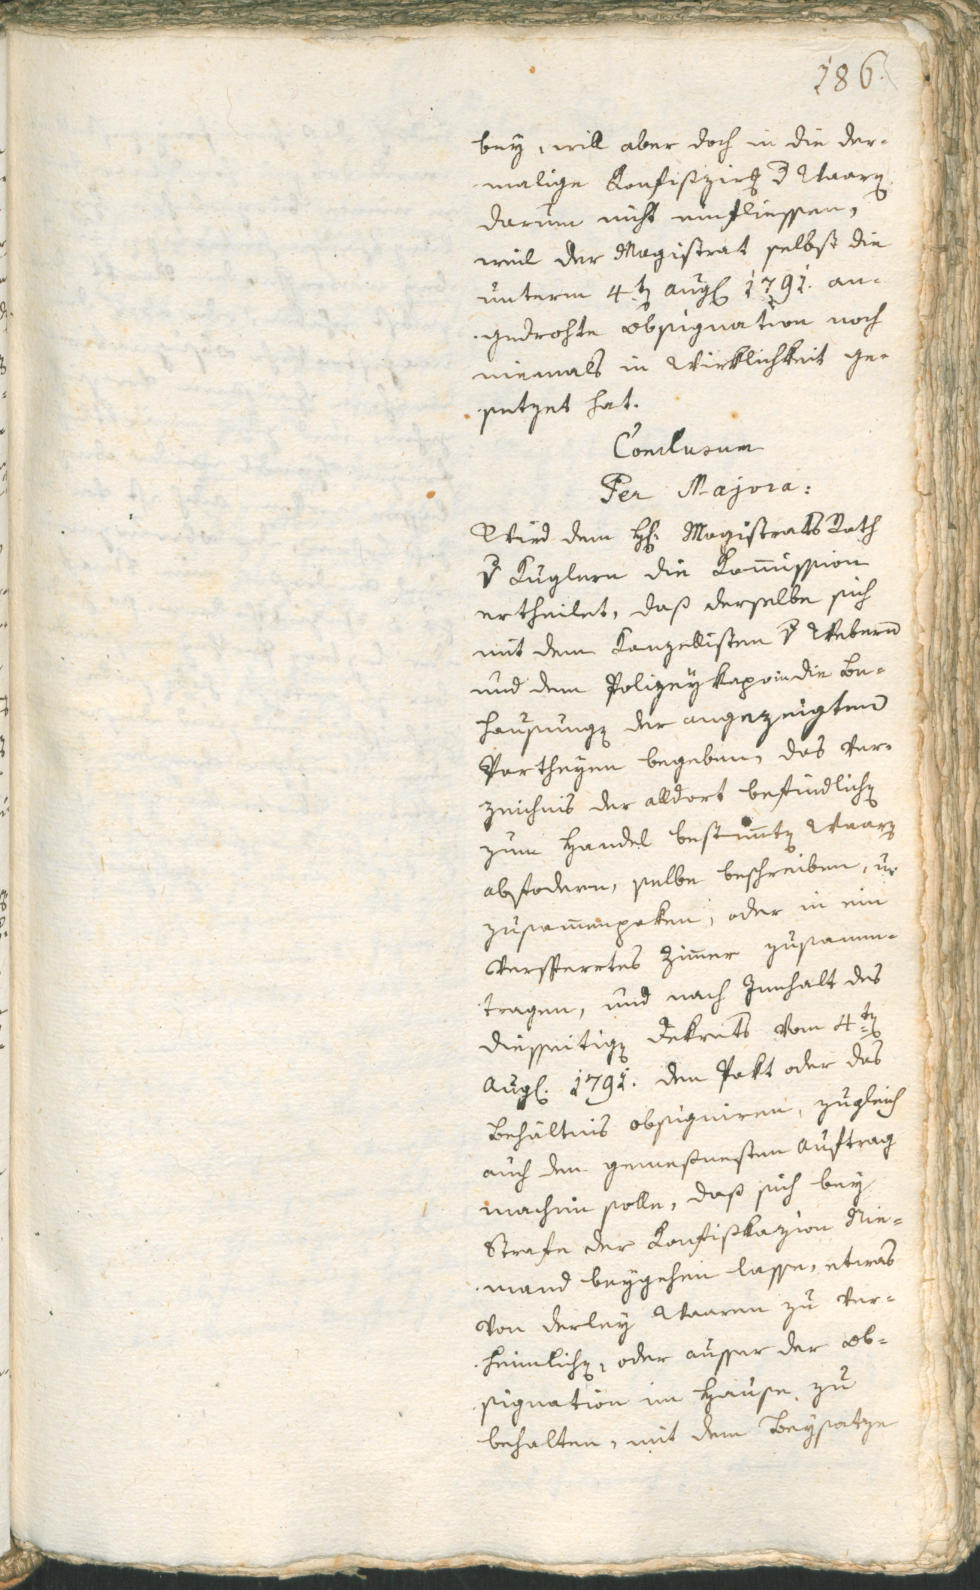 186.
bey, will aber doch in die der-
malige Konfiszirg d Waarẽ
darum nicht einfliessen,
weil der Magistrat selbst die
unterm 4tẽ Augs 1791. an-
gedrohte Obsignation noch
niemals in Wirklichkeit ge-
setzet hat.
Conclusum
Per Majora:
Wird dem H: Magistrats Rath
v Kuglern die Kom̄ission
ertheilet, daß derselbe sich
mit dem Kanzellisten v Webern
und dem Polizey die Be-
hausungẽ der angezeigten
Partheyen begeben, das Ver-
zeichnis der alldort befindlichẽ
zum Handel bestim̄tẽ Waarẽ
abfodern, selbe beschreiben, u
zusam̄enpaken, oder in ein
versperrtes Zim̄er zusamm-
tragen, und nach Innhalt des
diesseitigẽ Dekrets vom 4tẽ
Augs. 1791. den Pakt oder das
Behältnis obsigniren, zugleich
auch den gemeßnesten Auftrag
machen solle, daß sich bey
Strafe der Konfiskazion Nie-
mand beygehen lasse, etwas
von derley Waaren zu ver-
heimlichẽ, oder ausser der Ob-
signation im Hause zu
behalten, mit dem Beysatze